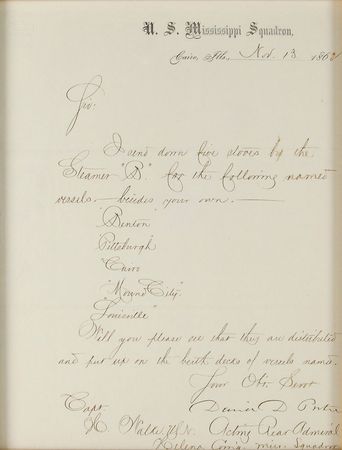 U. S. Mississippi Squadron,
Cairo, Ills., Nov. 13 1862
Sir:
I send down five stoves by the
Steamer "B." for the following named
vessels — besides your own. —
"Benton"
"Pittsburgh"
"Cairo"
"Mound City"
"Louisville"
Will you please see that they are distributed
and put up on the berth decks of vessels named.
Your Obt. Servt
David D Porter
Capt.
H. Walke USN. Acting Rear Admiral
Helena Comg. Miss. Squadron